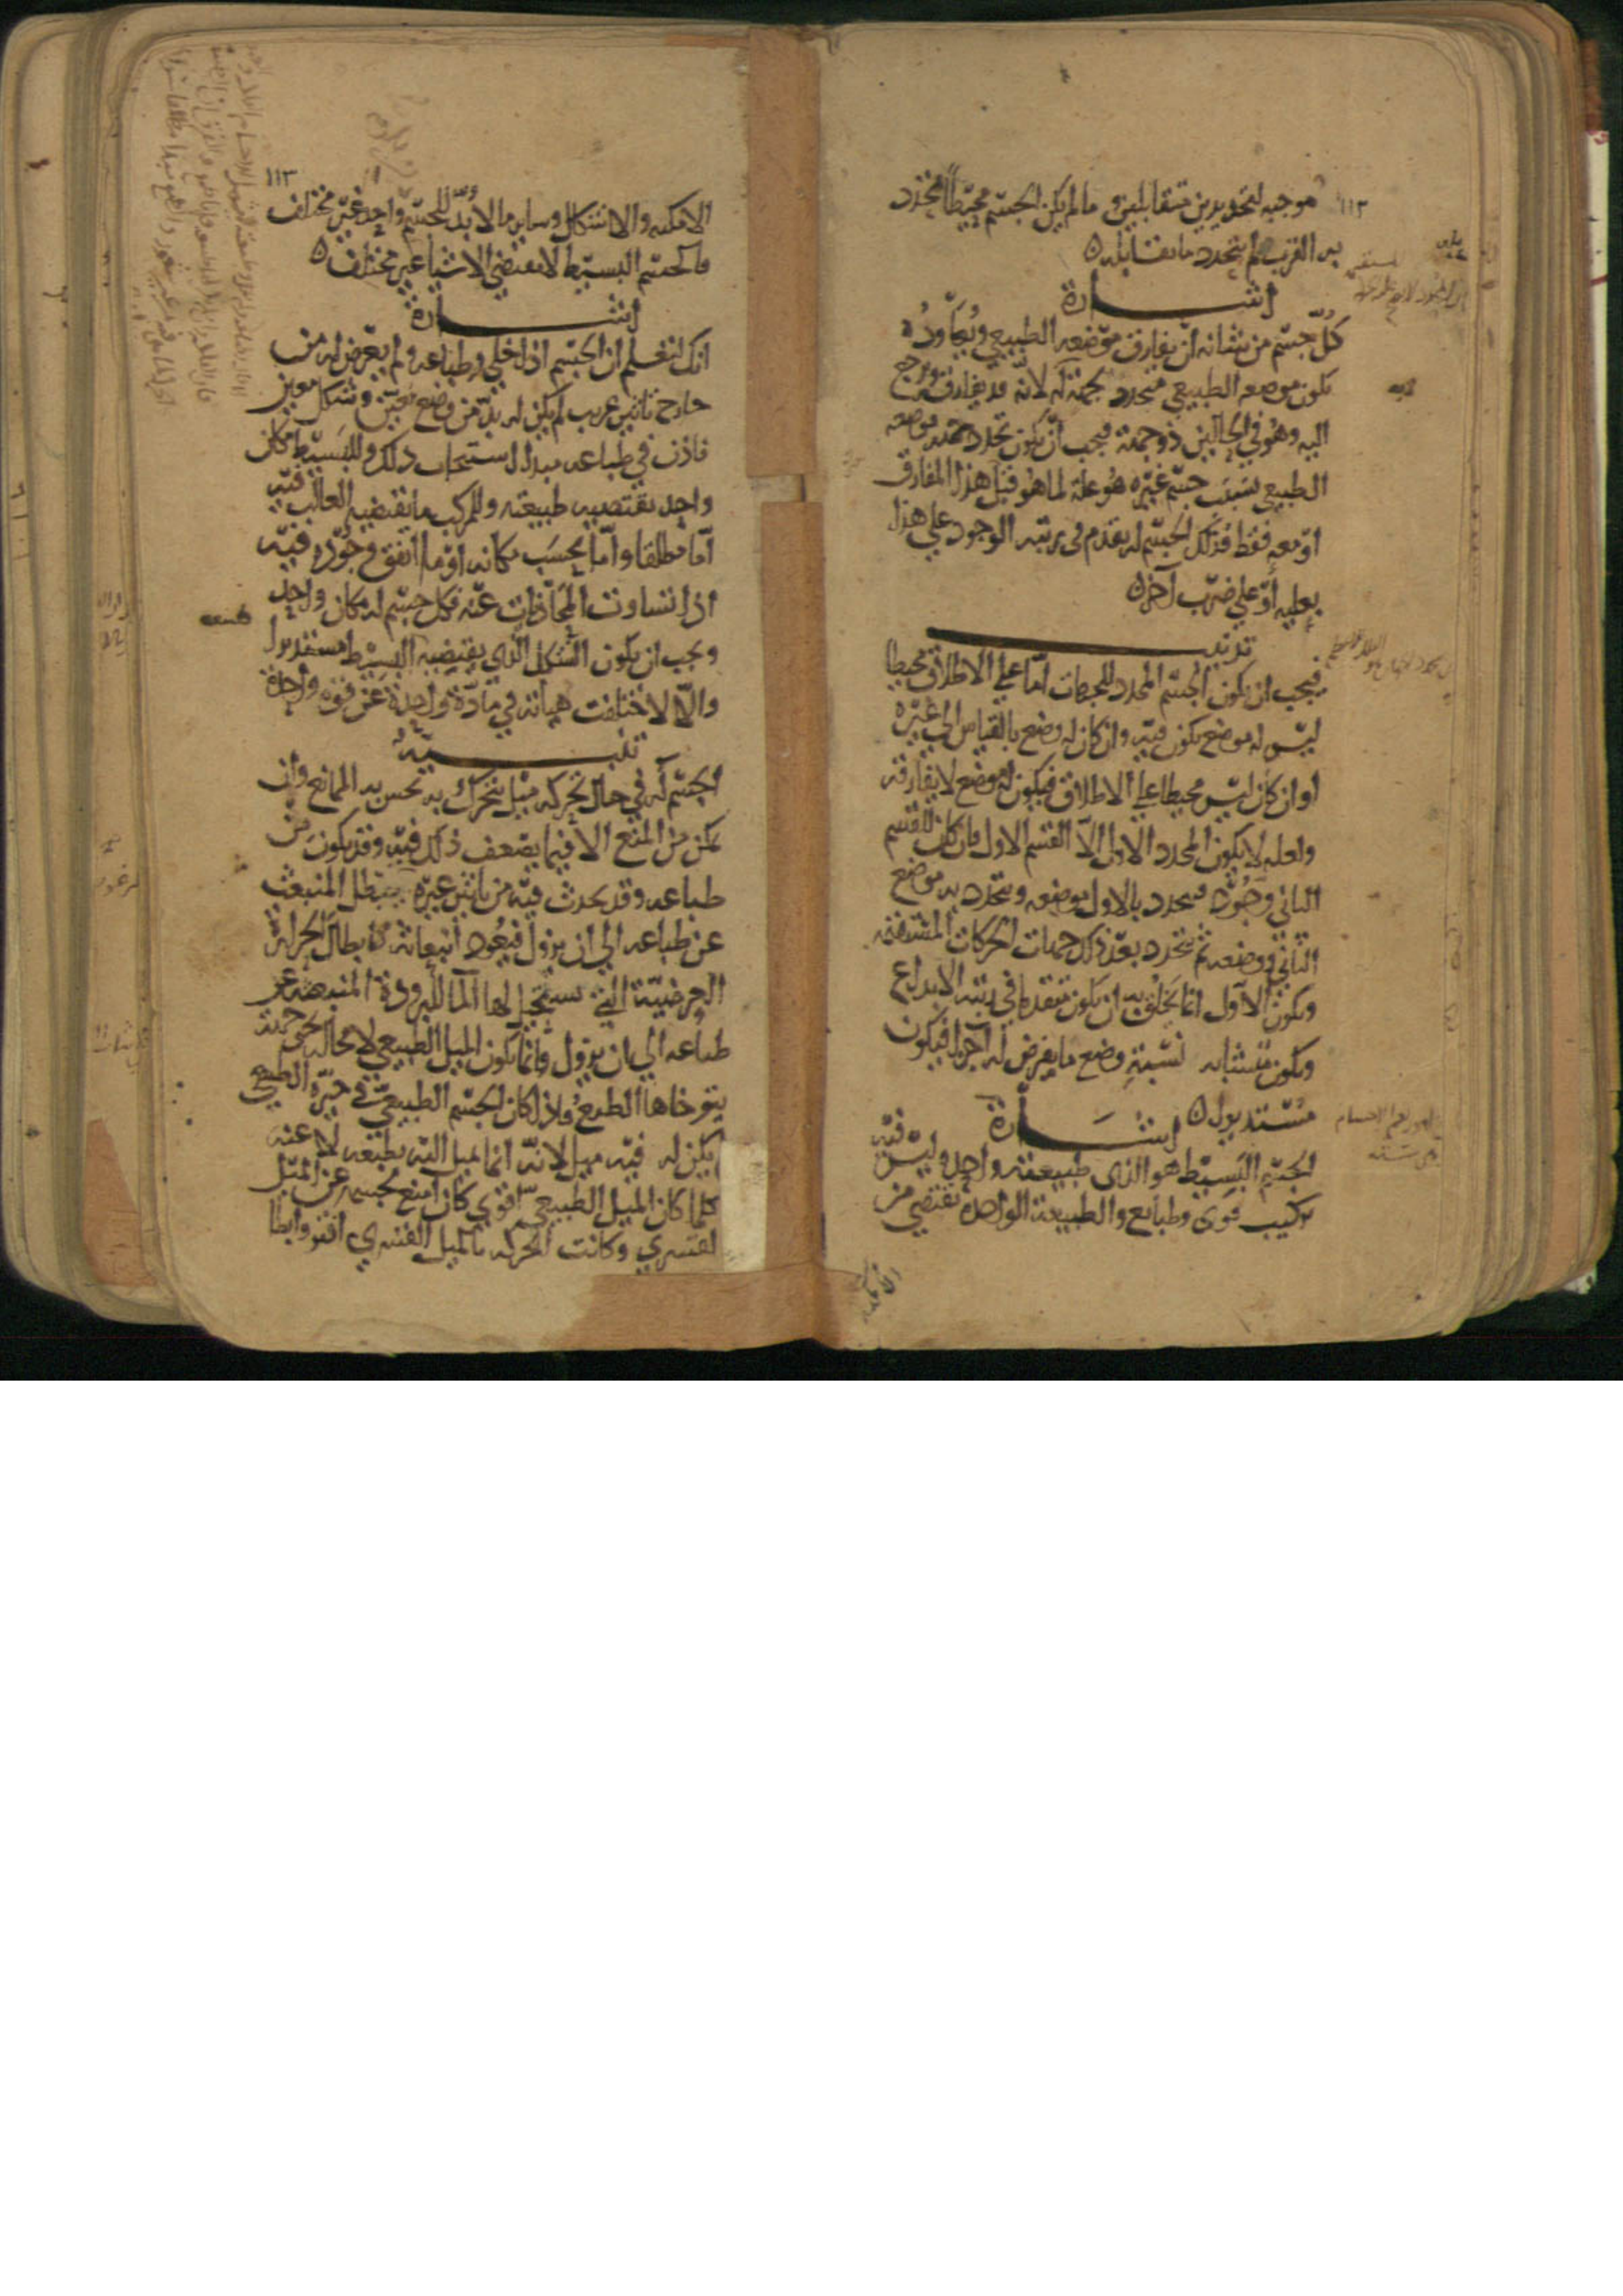 ١١٢
موجبه لتحديدين متقابلين و ما لم يكن الجسم محيطا تحدد
به القرب لم يتحدد ما يقابله
اشارة
كل جسم من شانه ان يفارق موضعه الطبيعي ويعاوده
يكون موضعه الطبيعي متحدد بجهة له لانه قد يفارق ويرجع
اليه وهو في الحالين ذو جهة فيجب ان يكون تحدد جهة موضعه
الطبيعي بسبب جسم غيره هو علة لما هو قبل هذا المفارق
او معه فقط فذلك الجسم له تقدم في رتبه الوجود علي هذا
بعليه او علي ضرب آخر
تذنيب
فيجب ان يكون الجسم المحدد للجهات اما علي الاطلاق محيطا
ليس له موضع يكون فيه وان كان له وضع بالقياس الي غيره
او ان كان ليس محيطا علي الاطلاق فيكون له موضع لا يفارقه
ولعله لا يكون المحدد الاول الا القسم الاول فان كان للقسم
الثاني وجود فيتحدد بالاول موضعه ويتحدد به موضع
الثاني ووضعه ثم يتحدد بعد ذلك جهات الحركات المستقيمه
ويكون الاول انما يخلق به ان يكون متقدما في رتبه الابداع
ويكون متشابه نسبة وضع ما يفرض له اجزا فيكون
مستديرا
اشارة
الجسم البسيط هو الذي طبيعته واحده ليس فيه
تركيب قوى وطبائع والطبيعة الواحدة تقتضي من
الامكنه
١١٣
الامكنه والاشكال وساير ما لا بد للجسم واحد غير مختلف
فالجسم البسيط لا يقتضي الا شيا غير مختلف
اشارة
انك لتعلم ان الجسم اذا خلي وطباعه ولم يعرض له من
خارج تاثير غريب لم يكن له بد من وضع معين وشكل معين
فاذن في طباعه مبدا استيجاب ذلك وللبسيط مكان
واحد تقتضيه طبيعته وللمركب ما تقتضيه الغالب فيه
اما مطلقا واما بحسب مكانه او ما اتفق وجوده فيه
اذا تساوت المحاذيات عنه فكل جسم له مكان واحد
ويجب ان يكون الشكل الذي يقتضيه البسيط مستديرا
والا لاختلفت هياته في مادة واحدة عن قوة واحدة
تنبيه
الجسم له في حال تحركه ميل يتحرك به تحس به الممانع وان
يمكن من المنع الا فيما يضعف ذلك فيه وقد يكون من
طباعه وقد يحدث فيه من تاثير غيره فيبطل المنبعث
عن طباعه الي ان يزول فيعود انبعاثه كابطال الحرارة
العرضية التي يستحيل لها الما للبرودة المنبعثة عن
طباعه الي ان يزول وانما يكون الميل الطبيعي لا محاله نحو جهة
يتوخاها الطبع واذا كان الجسم الطبيعي في حيزه الطبيعي
لم يكن له فيه ميل لانه انما يميل اليه بطبعه لا عنه
كلما كان الميل الطبيعي اقوي كان امنع لجسمه عن الميل
القسري وكانت الحركه بالميل القسري افتر وابطا